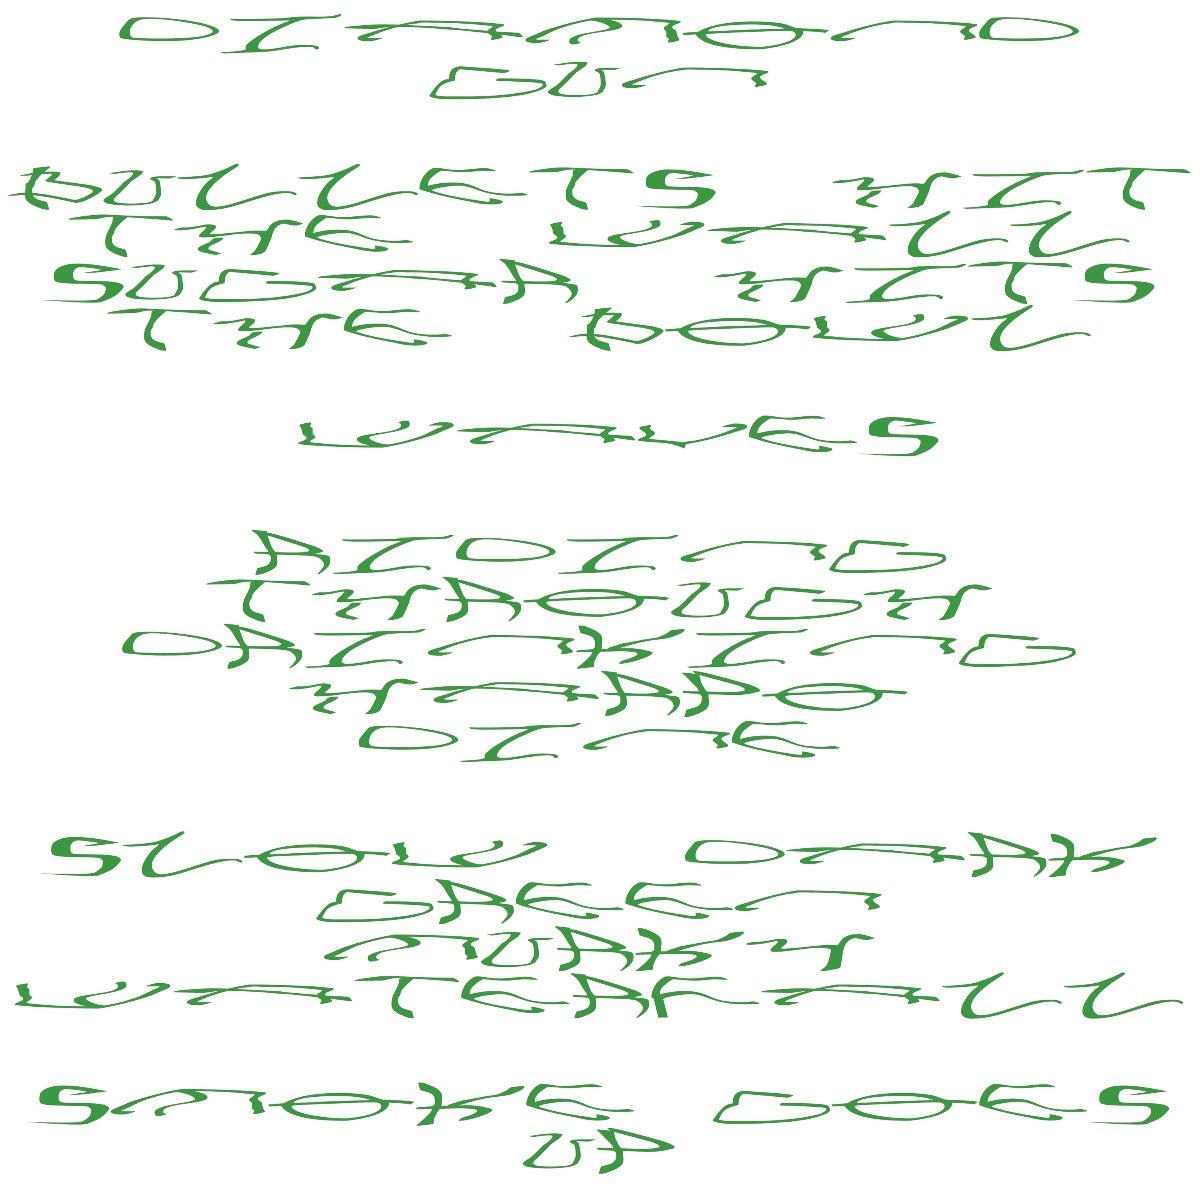 DIAMOND
GUN
BULLETS HIT
THE WALL
SUGAR HITS
THE BOWL
WAVES
RIDING
THROUGH
DRINKING
HARPO
DINE
SLOW DARK
GREEN
MURKY
WATERFALL
SMOKE GOES
UP